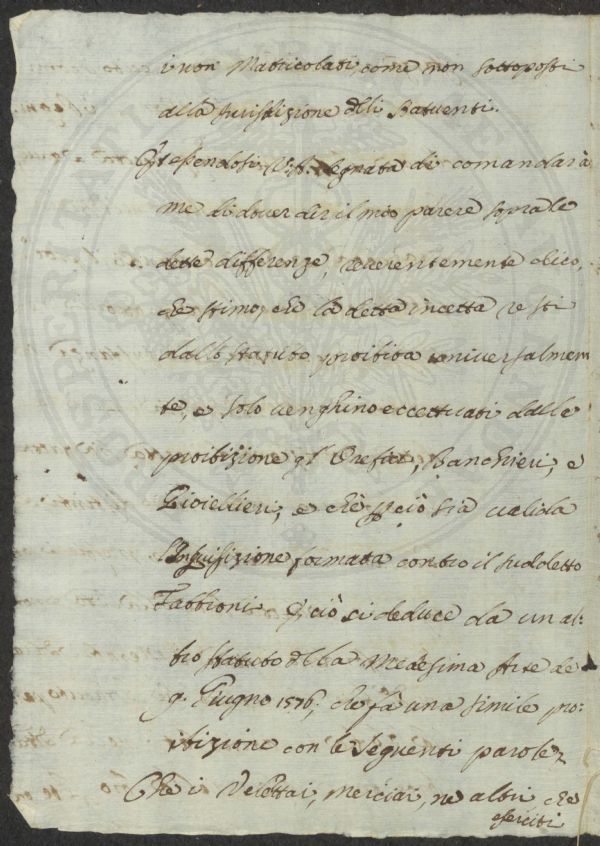 i non Matticolati, come non sottoposti
alla Jurisdizione dlli Battenti.
V. A. degnata di comandar à
me di dover dir il mio parere sopra le
dette differenze, reverentemente dico,
che stimo, che la detta incetta resti
dallo statuto proibita universalmen
te, e solo venghino eccettuati dalle
proibizione gl' Orefici, Banchieri, e
Gioiellieri, e che ciò sia valida
l'Inquisizione formata contro il suddetto
Fabbioni. ciò si deduce da un al:
tro statuto dlla Medesima Arte de
9. Giugno 1576, che fà una simile pro:
ibizione con le seguenti parole
Che i Velettai, merciai, ne altri che
eserciti